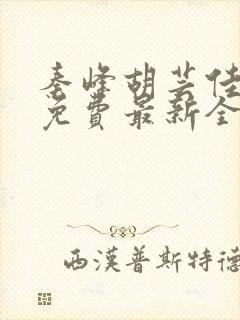 秦峰胡芸佳
免費最新全
西漢普斯特德